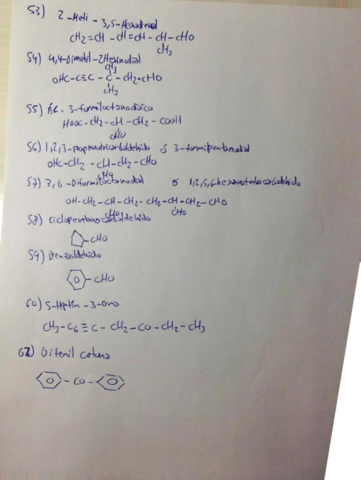 53) 2-Metil-3,5-Hexadienal
CH2=CH-CH=CH-CH-CHO
CH3
54) 4,4-Dimetil-2Hexinodial
CH3
OHC-C≡C-C-CH2-CHO
CH3
55) Ac. 3-formiloctanodioico
HOOC-CH2-CH-CH2-COOH
CHO
56) 1,2,3-propanotricarbaldehido ó 3-formilpentanodial
OHC-CH2-CH-CH2-CHO
57) 3,6-Diformiloctanodial ó 1,2,5,6 hexanotetracarbaldehido
OH-CH2-CH-CH2-CH2-CH-CH2-CHO
CHO CHO
58) Ciclopentanocarbaldehido
-CHO
59) Benzaldehido
-CHO
60) 5-Heptin-3-Ona
CH3-C≡C-CH2-CO-CH2-CH3
62) Difenil cetona
-CO-